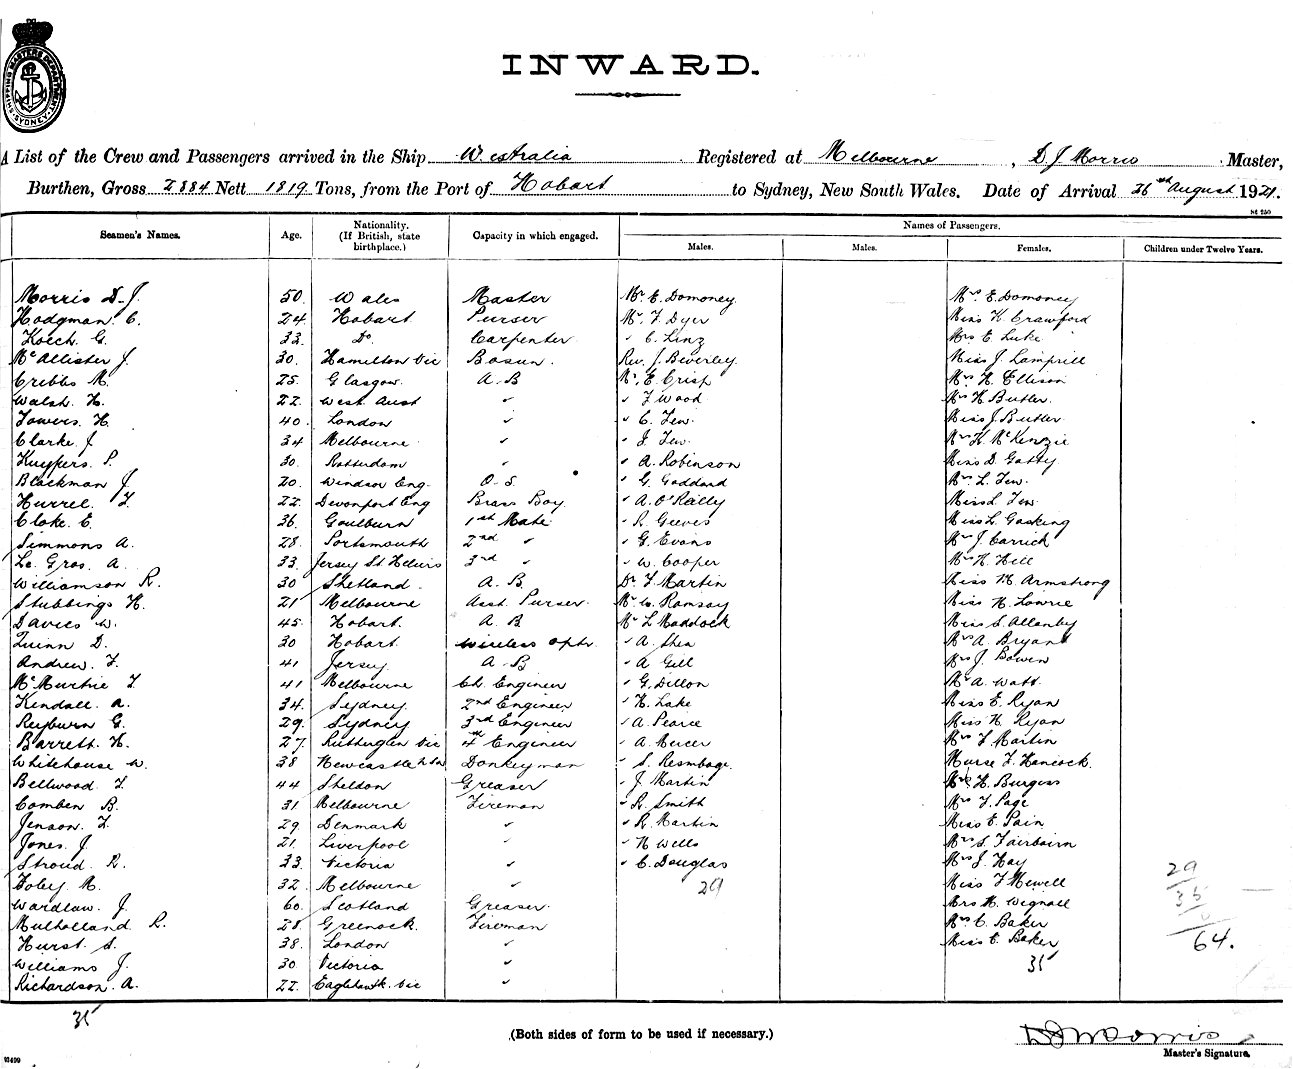 SHIPPING MASTER'S DEPARTMENT SYDNEY
INWARD.
A List of the Crew and Passengers arrived in the Ship Westralia Registered at Melbourne, D J Morris Master,
Burthen, Gross 2884 Nett 1819 Tons, from the Port of Hobart to Sydney, New South Wales. Date of Arrival 26th August 1921.
St 250
Seamen's Names. Age. Nationality. (If British, state birthplace.) Capacity in which engaged. Names of Passengers.
Males. Males. Females. Children under Twelve Years.
Morris D. J. 50. Wales Master Mr. E. Domoney. Mrs E. Domoney
Hodgman. C. 24. Hobart Purser Mr. F. Dyer Miss K. Crawford
Koech. G. 33. Do. Carpenter " C. Linz Mrs E. Luke
McAllister J. 30. Hamilton Vic Bosun. Rev. J. Beverley. Miss J. Lamprill
Cribbs M. 25. Glasgow. A.B Mr. E. Crisp Mrs H. Ellison
Walsh. H. 22. West. Aust " " F. Wood Mrs H. Butler.
Towers. H. 40. London " " C. Tew. Miss J. Butler
Clarke. J 34 Melbourne " " J. Tew. Mrs H. McKenzie
Kuypers. P. 30. Rotterdam " " A. Robinson Miss D. Gatty
Blackman J. 20. Windsor Eng. O.S. " G. Goddard Mrs L. Tew.
Hurrel. F. 22. Devonport Eng Brass Boy. " A. O'Reilly Miss L. Tew.
Cloke. E. 36. Goulburn 1st Mate " R. Geeves Miss L. Gosking
Simmons A. 28. Portsmouth 2nd " " G. Evans Mrs J. Carrick
Le. Gros. A. 33. Jersey St Heliers 3rd " " W. Cooper Mrs H. Hill
Williamson R. 30 Shetland. A.B. Dr. F. Martin Miss M. Armstrong
Stubbings H. 21 Melbourne Asst. Purser. Mr. W. Ramsay Miss H. Lowrie
Davies W. 45. Hobart. A.B Mr L Maddock Miss S. Allanby
Quinn D. 30 Hobart. Wireless Optr. " A. Shea Mrs A. Bryant
Andrew. F. 41 Jersey. A.B " A Gill Mrs J. Bowen
McMurtrie F. 41 Melbourne Ch. Engineer " G. Dillon Mrs A. Watt.
Kendall. A. 34. Sydney. 2nd Engineer " H. Lake Miss E. Ryan
Reyburn G. 29. Sydney 3rd Engineer " A. Pearce Miss H. Ryan
Barrett. H. 27. Rutherglen Vic 4th Engineer " A. Mercer Mrs F. Martin
Whitehouse W. 38 Newcastle Donkeyman " S. Nurse F. Hancock.
Bellwood. F. 44 Sheldon Greaser " J. Martin H. Burgess
Comben B. 31. Melbourne Fireman " R. Smith Mrs F. Page
Jenson. F. 29. Denmark " " R. Martin Miss E. Pain
Jones. J. 21. Liverpool " " H Wells Mrs S. Fairbairn
Stroud R. 33. Victoria " " C. Douglas Mrs J. Hay 29
Foley. M. 32. Melbourne " 29 Miss F Mewell 35
Wardlaw. J. 60. Scotland Greaser. Mrs H. Wignall
Mulholland. R. 28. Greenock. Fireman Mrs C. Baker
Hurst. S. 38. London " Miss E. Baker 64.
Williams J. 30. Victoria " 35
Richardson. A. 22. Eaglehawk. Vic "
35
(Both sides of form to be used if necessary.) D J Morris
Master's Signature.